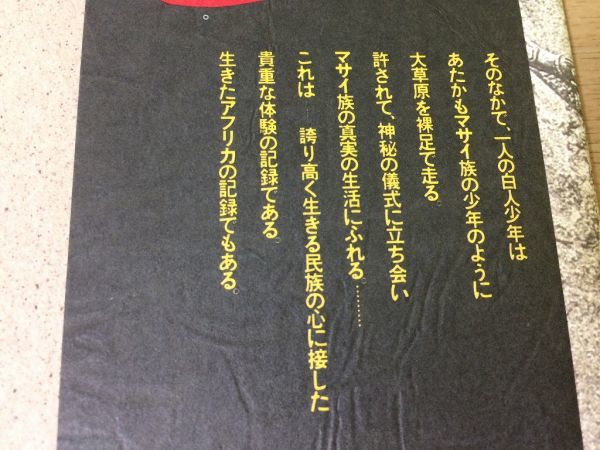 そのなかで、一人の白人少年は
あたかもマサイ族の少年のように
大草原を裸足で走る。
許されて、神秘の儀式に立ち会い
マサイ族の真実の生活にふれる。………
これは——誇り高く生きる民族の心に接した
貴重な体験の記録である。
生きたアフリカの記録でもある。